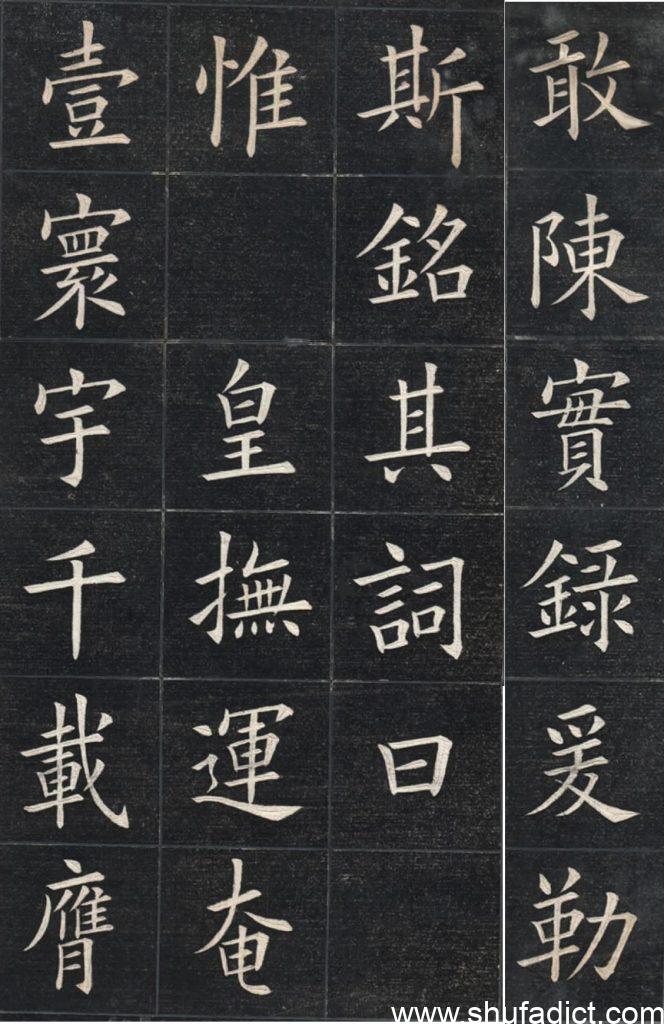 敢陳實錄爰勒
斯銘其詞曰
惟 皇撫運奄
壹寰宇千載膺
www.shufadict.com